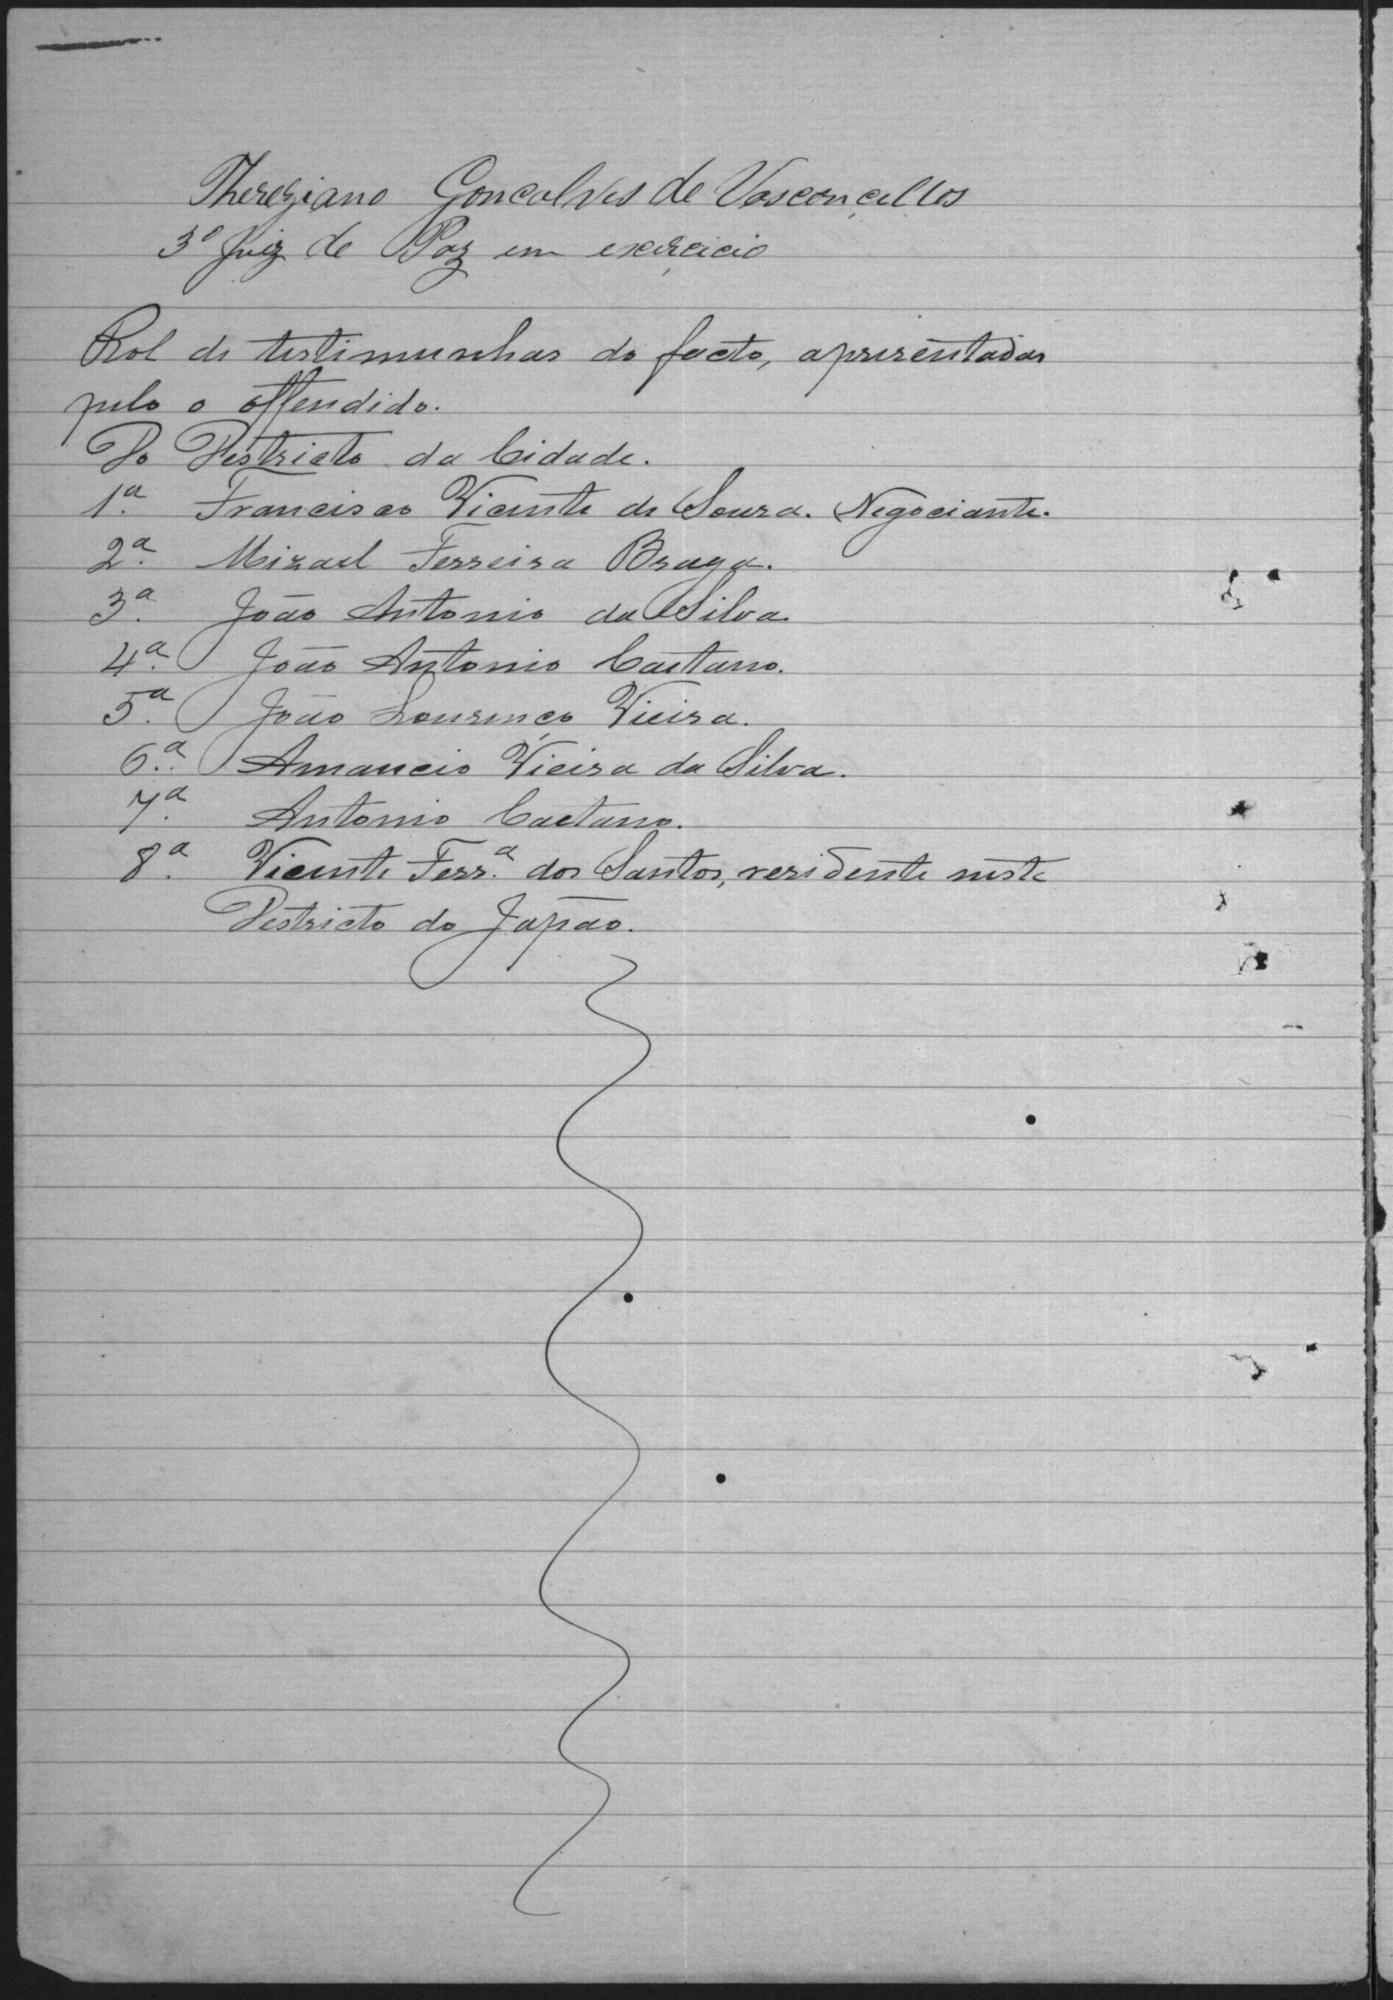 Thereziano Goncalves de Vasconcellos
3º Juiz de Paz em exercicio
Rol de testimunhas do facto, apresentadas
pelo o offendido.
Do Destricto da Cidade.
1ª. Francisco Vicente de Souza. Negociante.
2ª. Mizael Ferreira Braga.
3ª. João Antonio da Silva.
4ª. João Antonio Caetano.
5ª. João Lourenço Vieira.
6ª. Amancio Vieira da Silva.
7ª. Antonio Caetano.
8ª. Vicente Ferr.ª dos Santos, residente neste
Destricto do Japão.